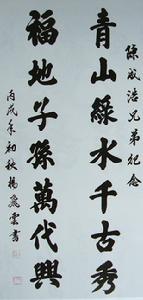 陳成浩兄弟紀念
青山綠水千古秀
福地子孫萬代興
丙戌年初秋楊飛雲書